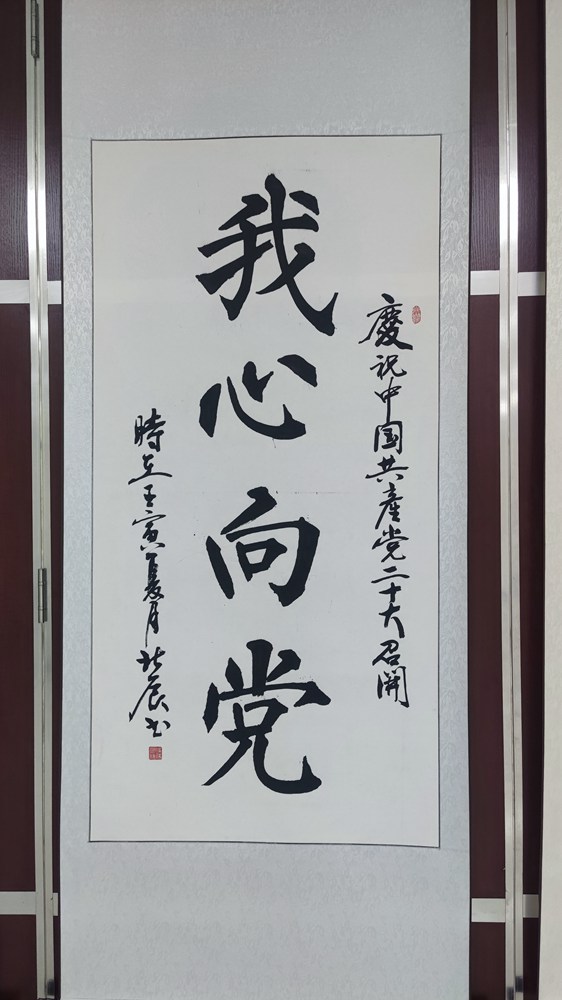 慶祝中国共產党二十大召開
我心向党
時在壬寅夏月北辰书